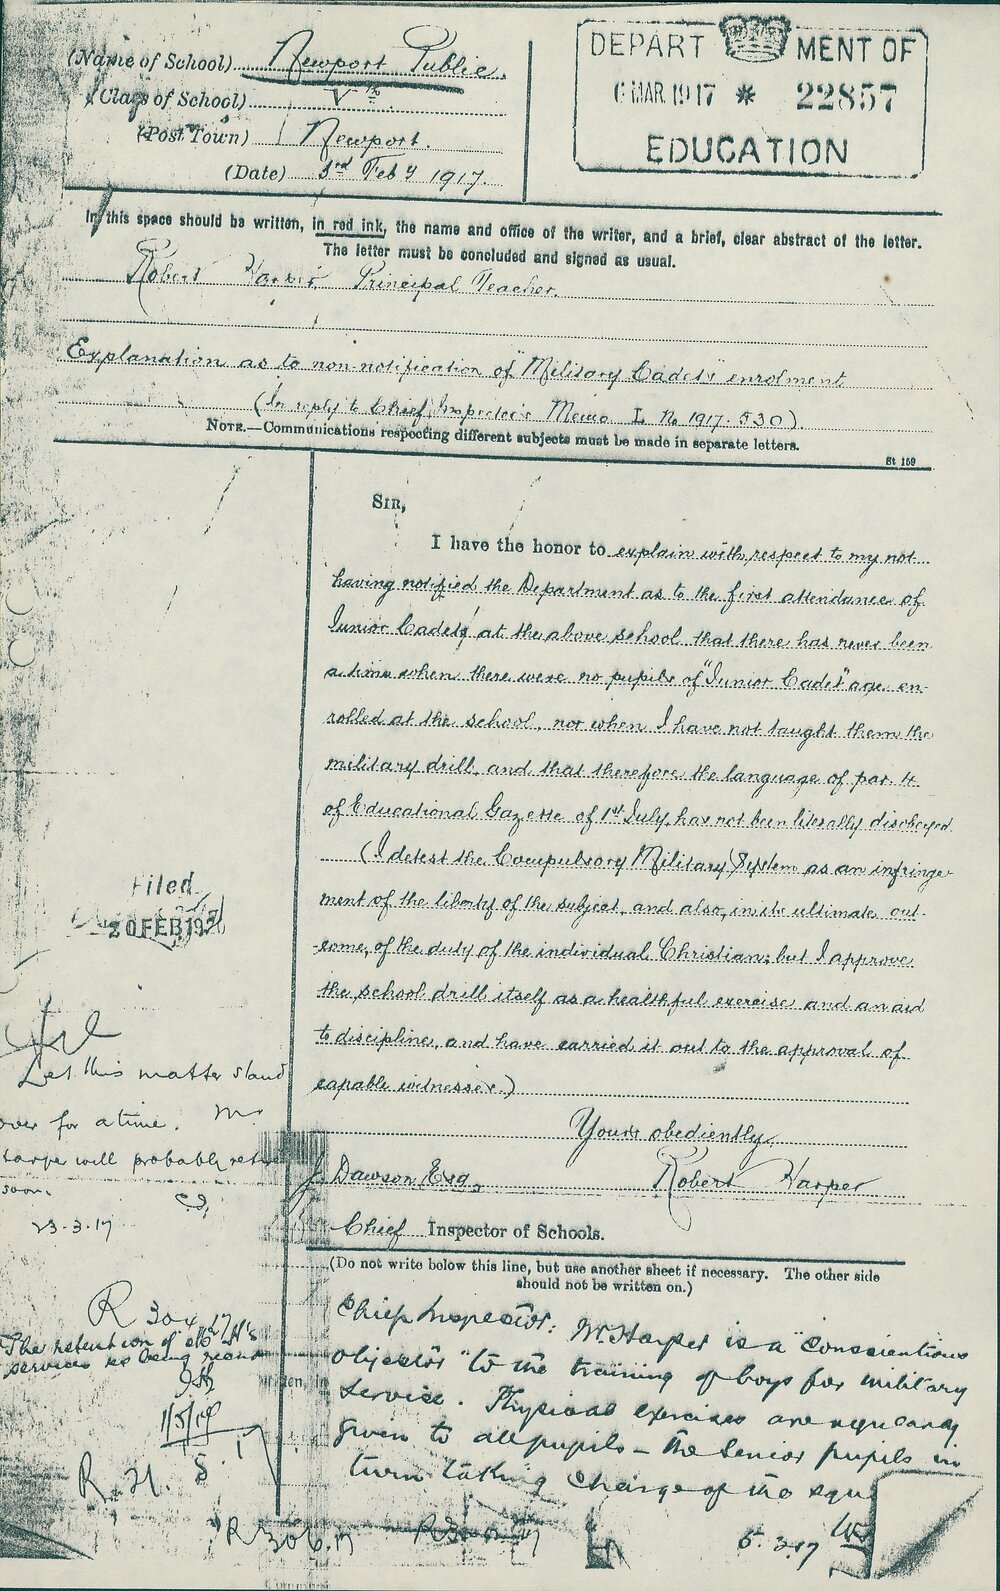 (Name of School) Newport Public.
(Class of School) V th
(Post Town) Newport.
(Date) 3rd Feb y 1917.
DEPARTMENT OF
MAR. 1917 * 22857
EDUCATION
In this space should be written, in red ink, the name and office of the writer, and a brief, clear abstract of the letter.
The letter must be concluded and signed as usual.
Robert Harper Principal Teacher.
Explanation as to non-notification of "Military Cadets" enrolment
(In reply to Chief Inspector's Memo I. No 1917. 530).
NOTE.—Communications respecting different subjects must be made in separate letters.
St 159
SIR,
I have the honor to explain with respect to my not
having notified the Department as to the first attendance of
Junior Cadets' at the above school that there has never been
a time when there were no pupils of "Junior Cadet" age en-
rolled at the school, nor when I have not taught them the
military drill, and that therefore the language of par. 4
of Educational Gazette of 1st July, has not been literally disobeyed
(I detest the Compulsory Military System as an infringe-
ment of the liberty of the subject, and also, in its ultimate out-
-come, of the duty of the individual Christian; but I approve
the school drill itself as a healthful exercise and an aid
to discipline, and have carried it out to the approval of
capable witnesses.)
Yours obediently,
J. Dawson, Esq.,
Robert Harper
Chief Inspector of Schools.
(Do not write below this line, but use another sheet if necessary. The other side
should not be written on.)
Chief Inspector: Mr Harper is a "Conscientious
objector" to the training of boys for military
service. Physical exercises are regularly
given to all pupils – the senior pupils in
turn taking charge of the squ
5.3.17
Filed
20 FEB 19
Let this matter stand
over for a time. Mr
Harper will probably retire
soon.
23.3.17
R 304.17
The retention of Mr H's
services is being recom
1/5/19
R. 21. S.
R 306.17